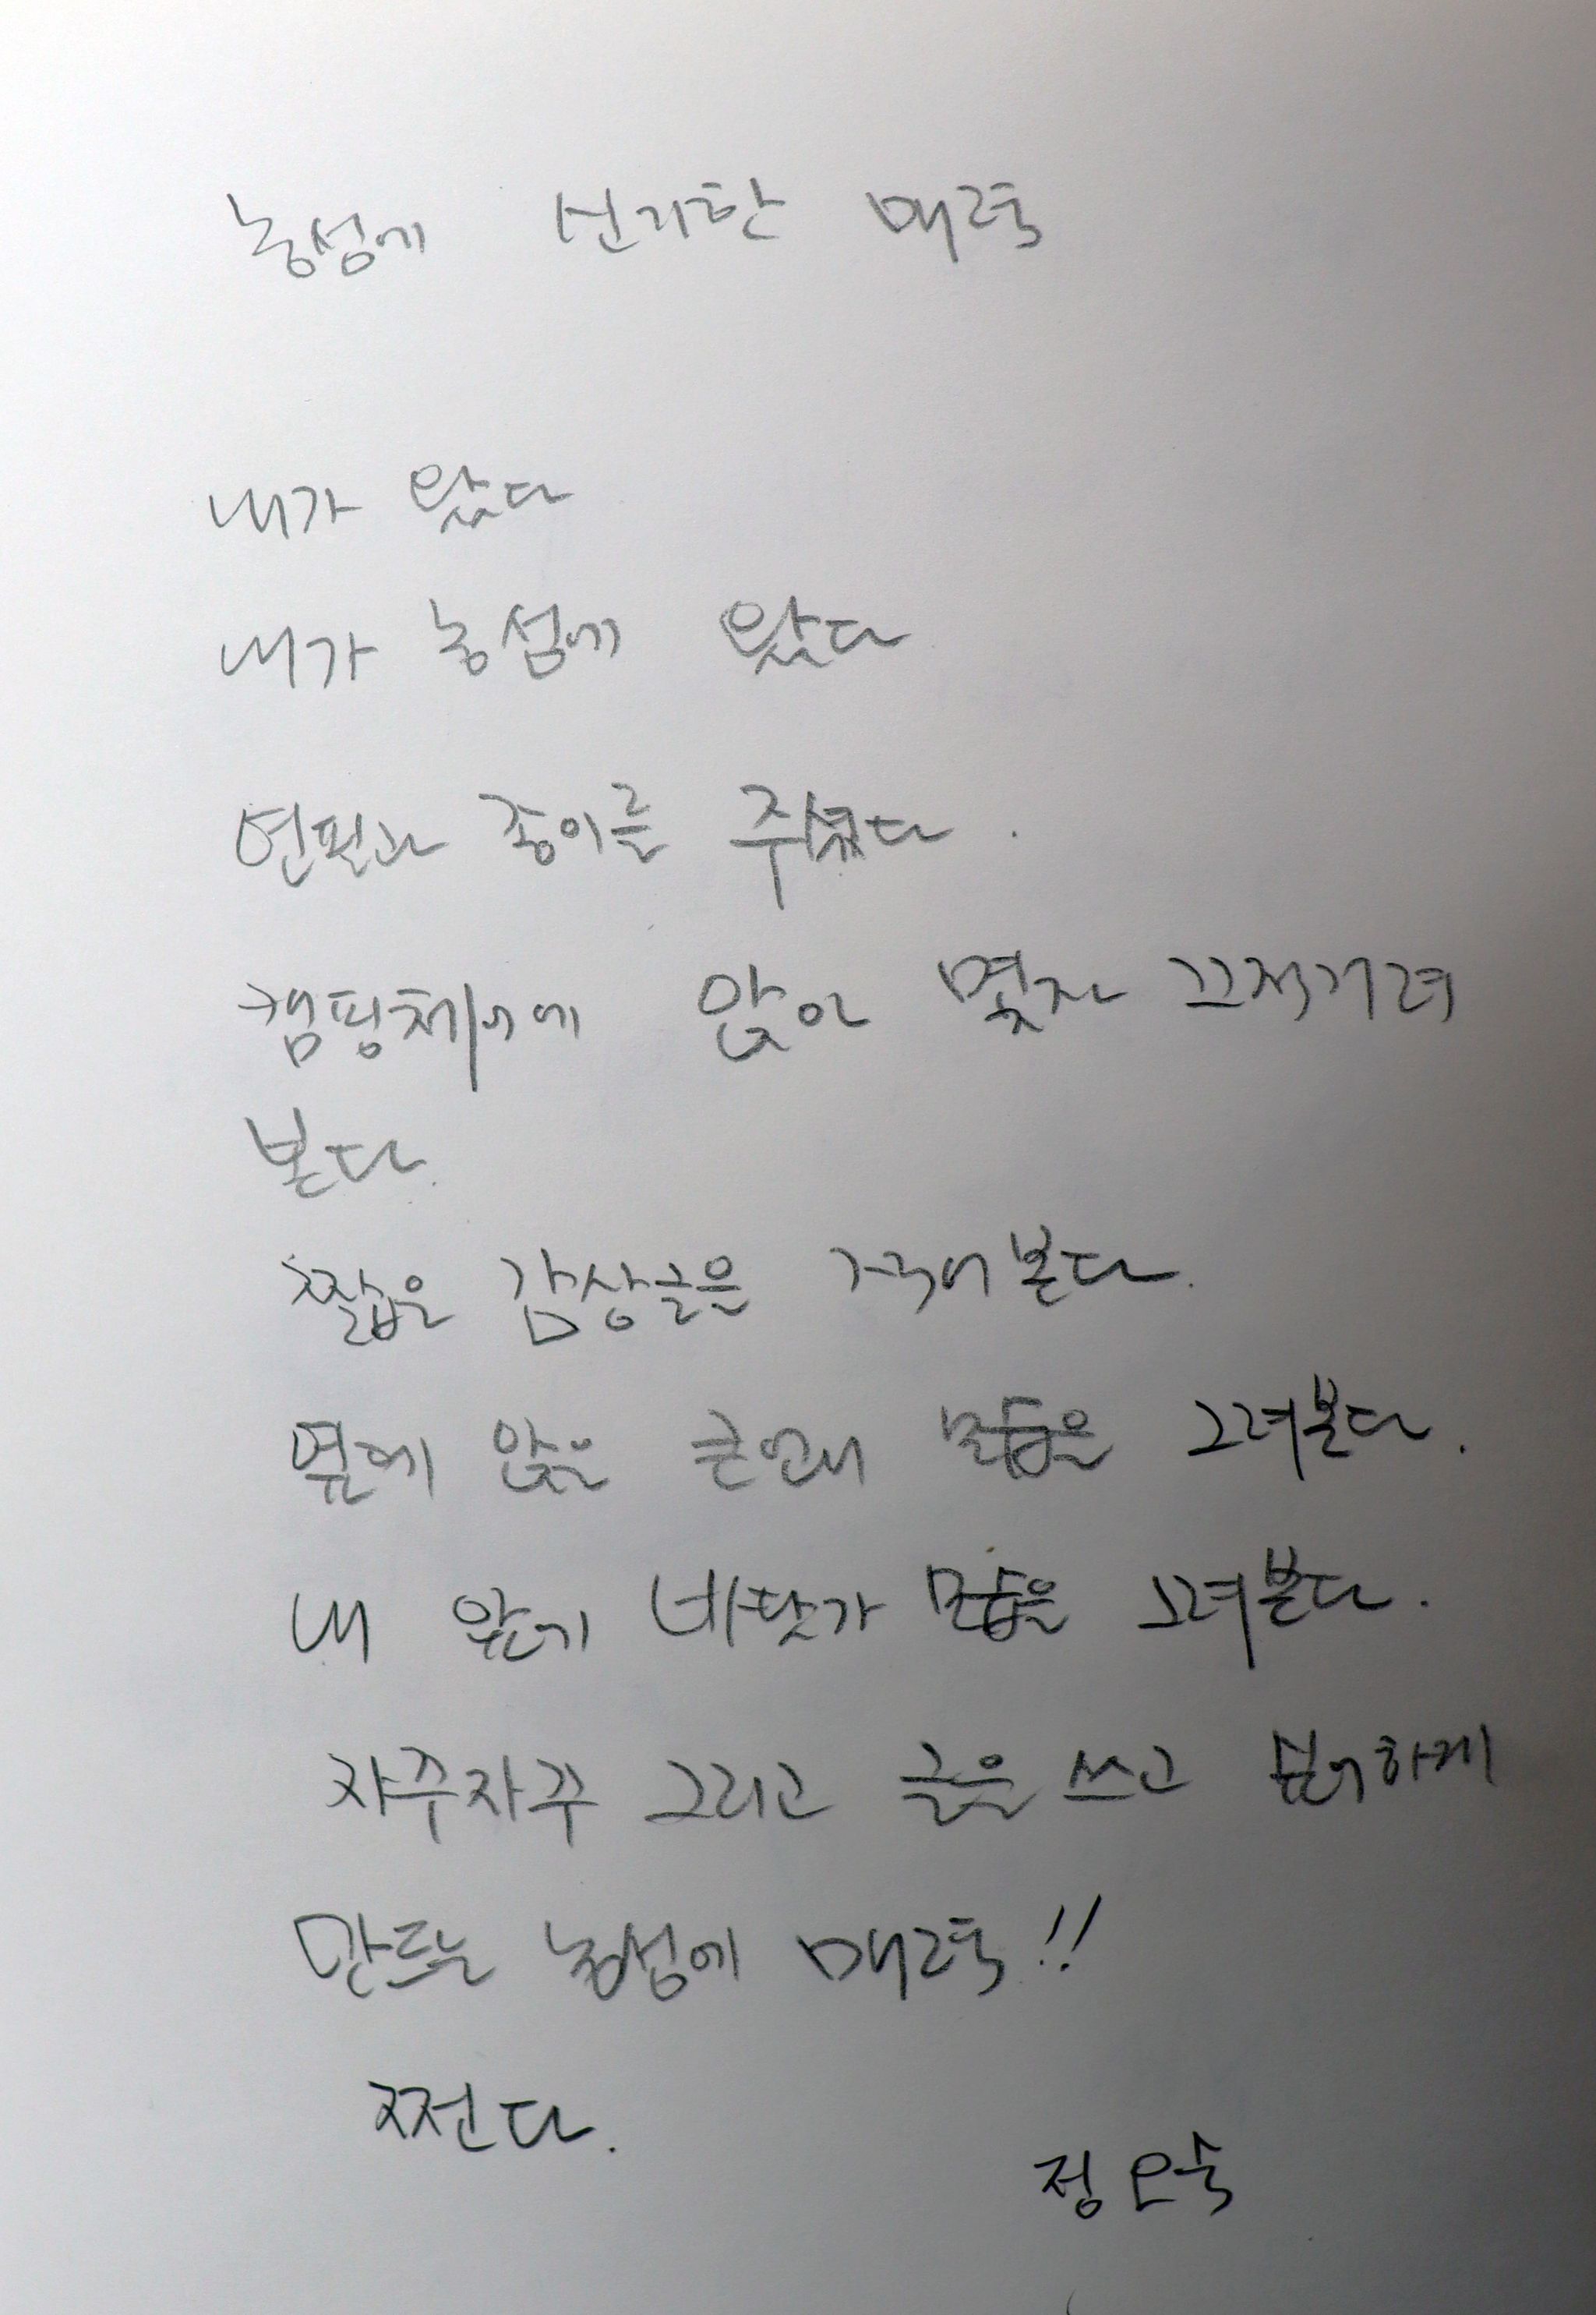 농섬에 신기한 매력
내가 왔다
내가 농섬에 왔다
연필과 종이를 주셨다.
캠핑체어에 앉아 몇자 끄적거려
본다.
짧은 감상글을 적어본다.
옆에 앉은 큰언니 모습을 그려본다.
내 앞에 바닷가 모습을 그려본다.
자꾸자꾸 그리고 글을 쓰고 하게
만드는 농섬에 매력!!
쩐다.
정은숙